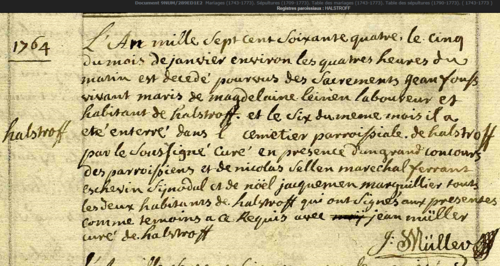 Document 9NUM/289ED1E2 Mariages (1743-1772), Sépultures (1760-1772), Table des mariages (1743-1772), Table des sépultures (1760-1772) (1743-1772)
Registres paroissiaux : HALSTROFF
1764
L'An mille sept cent soixante quatre, le cinq
du mois de janvier environ les quatres heures du
matin est decedé pourvus des Sacrements jean
vivant maris de magdelaine leinen laboureur et
habitant de halstroff. et le six du meme mois il a
halstroff
eté enterré dans l' cemetier parroissiale de halstroff
par le Soussigné Curé en presence d'un grand concours
des parroissiens et de nicolas Sellen marechal ferrant
eschevin Sinodal et de nöel jacquemen marguillier touts
les deux habitants de halstroff qui ont Signés aux presentes
comme temoins a ce Requis avec jean müller
curé de halstroff
J: Müller